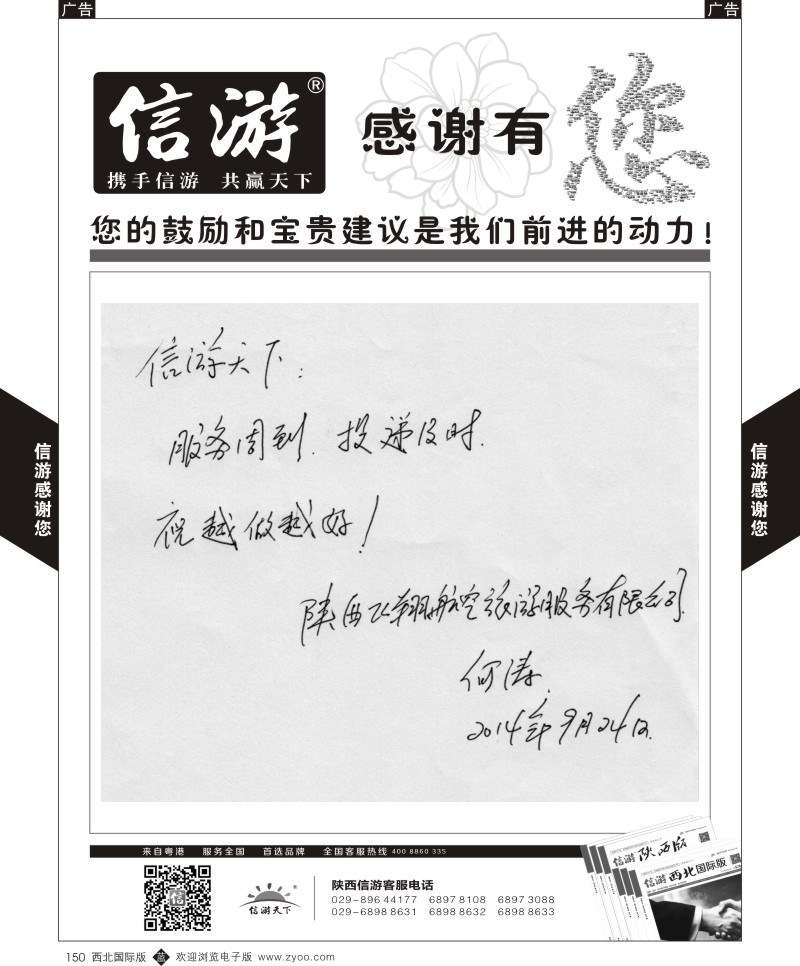 广告
广告
信游®
携手信游 共赢天下
感谢有您
您的鼓励和宝贵建议是我们前进的动力!
信游感谢您
信游感谢您
信游天下:
服务周到. 投递及时.
祝越做越好!
陕西飞翔航空旅游服务有限公司.
何涛.
2014年9月24日.
来自粤港 服务全国 首选品牌 全国客服热线 400 8860 335
信游 陕西版
信游 西北国际版
信游
信游天下
陕西信游客服电话
029-896 44177 6897 8108 6897 3088
029-6898 8631 6898 8632 6898 8633
150 西北国际版 蓝 欢迎浏览电子版 www.zyoo.com